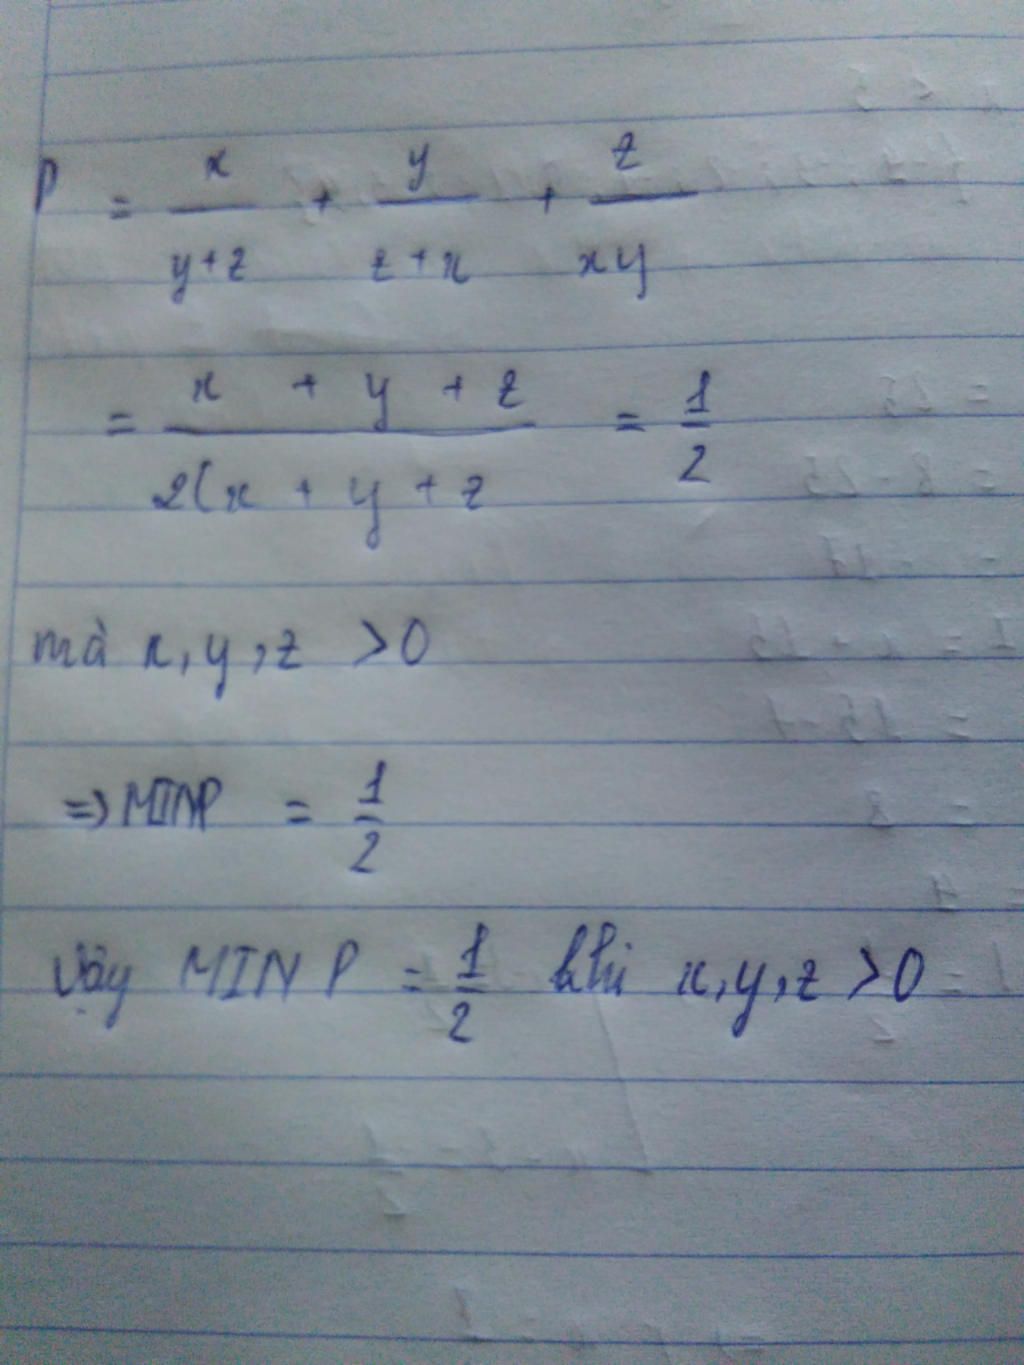 P = x/(y+z) + y/(z+x) + z/(xy)
= (x + y + z)/(2(x + y + z) = 1/2
mà x, y, z > 0
=> MINP = 1/2
Vậy MIN P = 1/2 khi x, y, z > 0